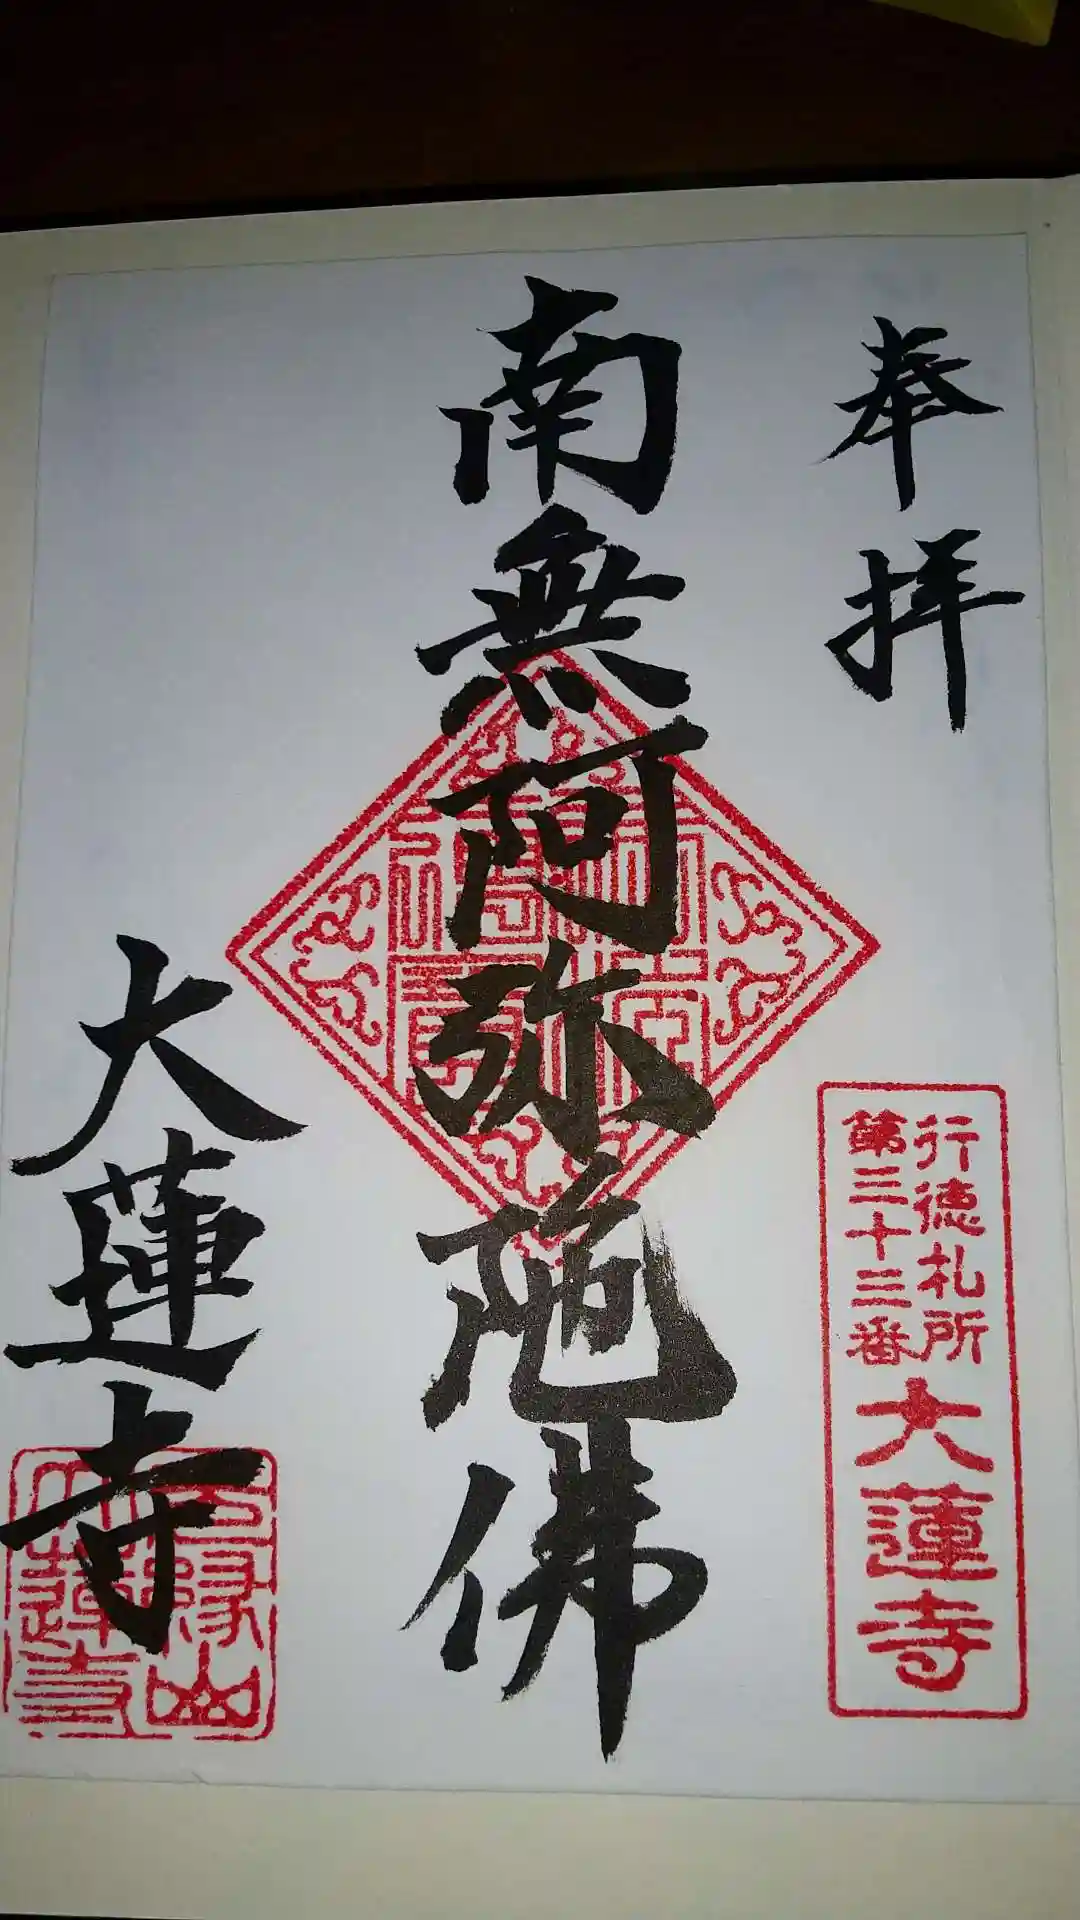 奉拝
行徳札所
第三十三番
大蓮寺
南無阿弥陀佛
大蓮寺
大蓮寺